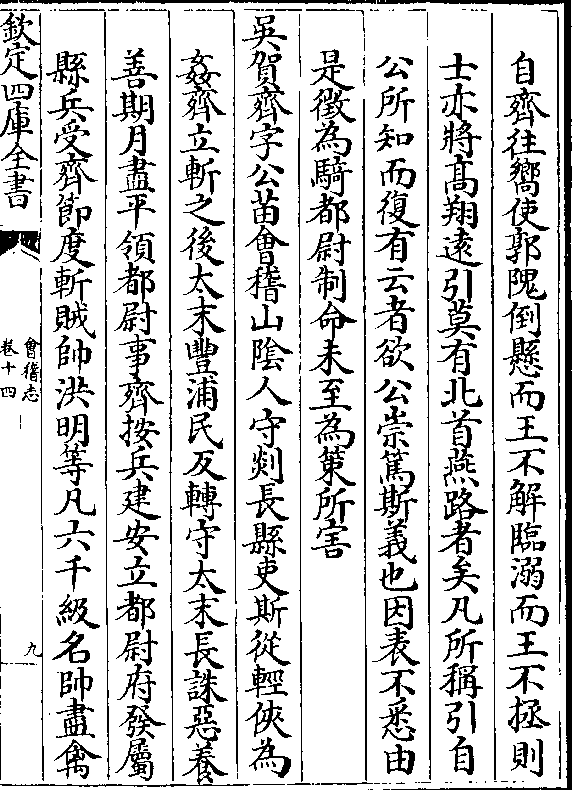 自齊往嚮使郭隗倒懸而王不解臨溺而王不拯則
士亦將髙翔逺引莫有北首燕路者矣凡所稱引自
公所知而復有云者欲公崇篤斯義也因表不悉由
是徵為騎都尉制命未至為策所害
吳賀齊字公苗會稽山隂人守剡長縣吏斯從輕俠為
姦齊立斬之後太末豐浦民反轉守太末長誅惡養
善期月盡平領都尉事齊按兵建安立都尉府發屬
縣兵受齊節度斬賊帥洪明等凡六千級名帥盡禽
欽定四庫全書
會稽志
卷十四
九